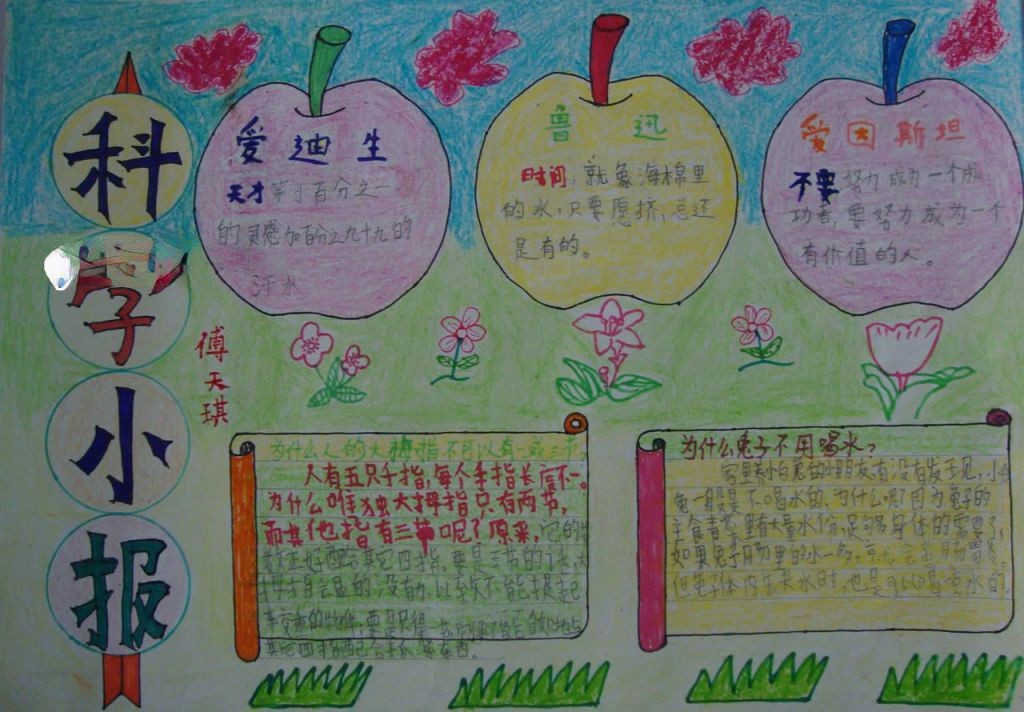 科
学
小
报
傅天琪
爱迪生
天才等于百分之一
的灵感加百分之九十九的
汗水
鲁迅
时间,就象海棉里
的水,只要愿挤,总还
是有的。
爱因斯坦
不要努力成为一个成
功者,要努力成为一个
有价值的人。
为什么人的大拇指不可以有一或三节
人有五只手指,每个手指长度不一。
为什么唯独大拇指只有两节,
而其他指有三节呢?原来,它的节
数正好配合其它四指,要是三节的话,大
拇指会显的没有力,以致不能提起
其它四指
为什么兔子不用喝水?
家里养小白兔的小朋友有没有发现,小白
兔一般是不喝水的,为什么呢?因为兔子的
主食青菜里有大量水份,足够身体的需要了,
如果兔子肠胃里的水一多,就会患肠胃炎。
但兔子体内缺水时,也是可以喝点水的。